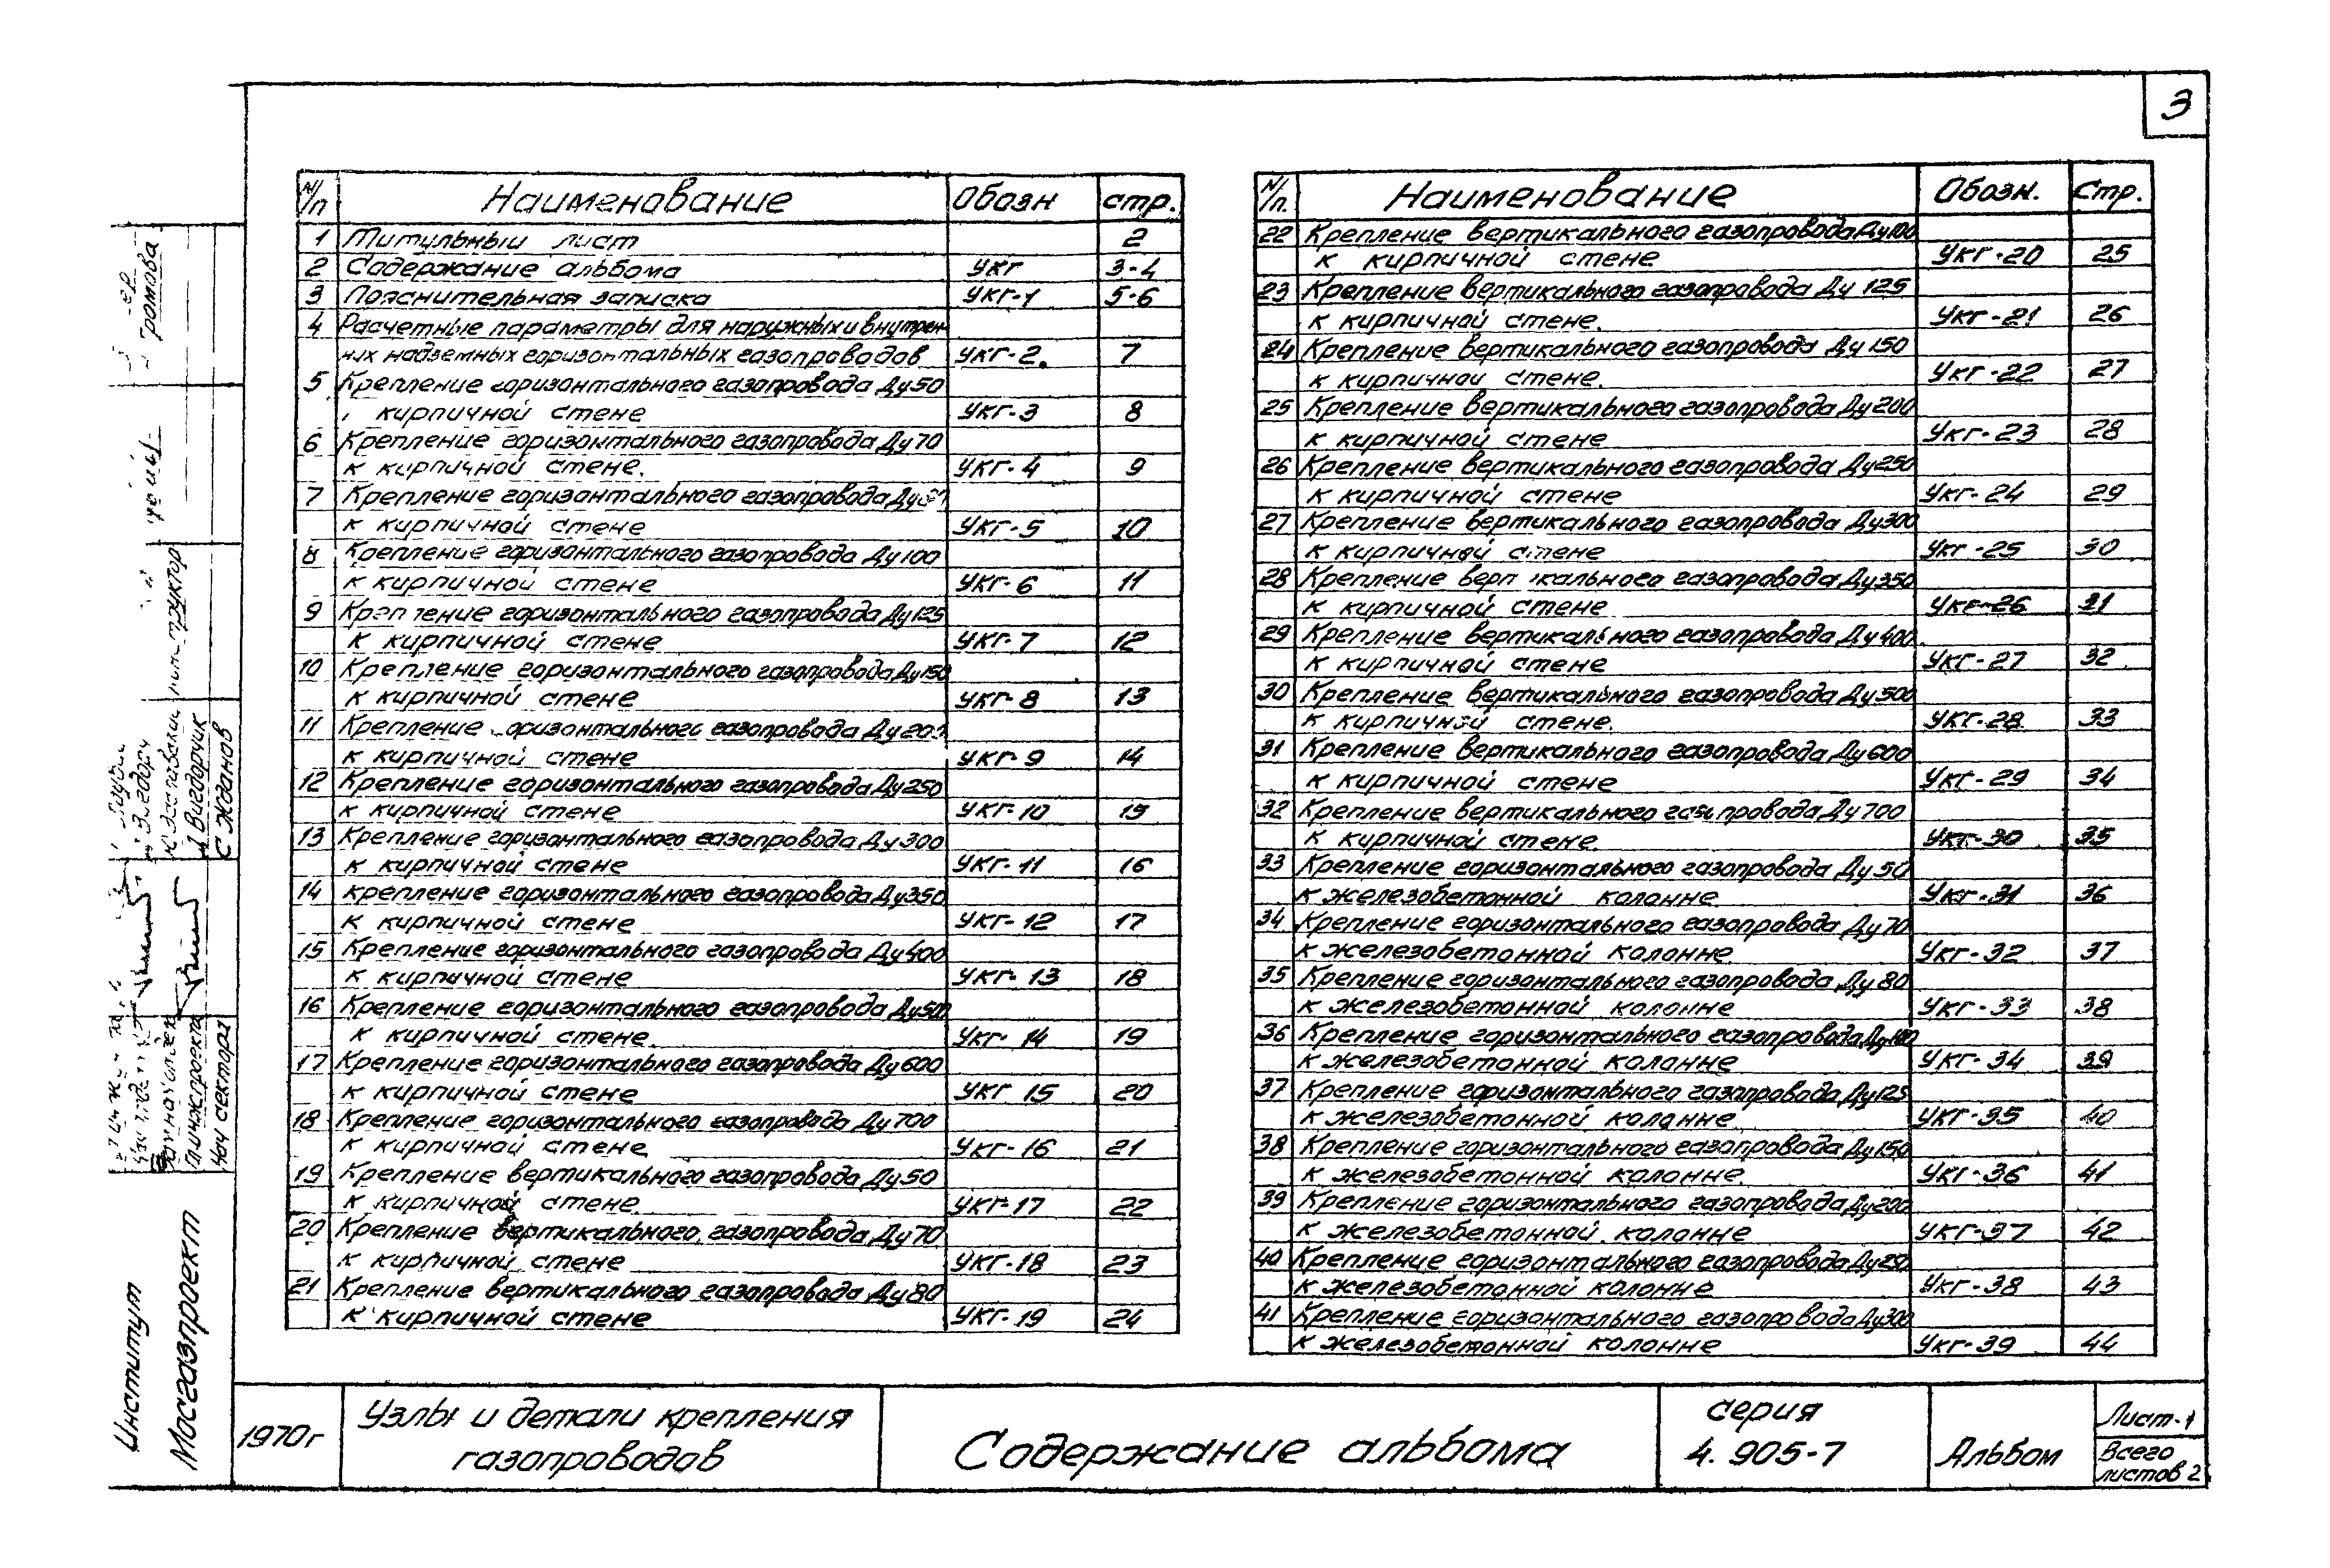 3
N/п Наименование Обозн стр.
1 Титульный лист 2
2 Содержание альбома УКГ 3-4
3 Пояснительная записка УКГ-1 5-6
4 Расчетные параметры для наружных и внутрен-
них надземных горизонтальных газопроводов УКГ-2. 7
5 Крепление горизонтального газопровода Ду50
кирпичной стене УКГ-3 8
6 Крепление горизонтального газопровода Ду70
к кирпичной стене. УКГ-4 9
7 Крепление горизонтального газопровода
к кирпичной стене УКГ-5 10
8 Крепление горизонтального газопровода Ду100
к кирпичной стене УКГ-6 11
9 Крепление горизонтального газопровода Ду125
к кирпичной стене УКГ-7 12
10 Крепление горизонтального газопровода Ду150
к кирпичной стене УКГ-8 13
11 Крепление горизонтального газопровода Ду200
к кирпичной стене УКГ-9 14
12 Крепление горизонтального газопровода Ду250
к кирпичной стене УКГ-10 15
13 Крепление горизонтального газопровода Ду300
к кирпичной стене УКГ-11 16
14 крепление горизонтального газопровода Ду350
к кирпичной стене УКГ-12 17
15 Крепление горизонтального газопровода Ду400
к кирпичной стене УКГ-13 18
16 Крепление горизонтального газопровода Ду500
к кирпичной стене. УКГ-14 19
17 Крепление горизонтального газопровода Ду600
к кирпичной стене УКГ 15 20
18 Крепление горизонтального газопровода Ду700
к кирпичной стене УКГ-16 21
19 Крепление вертикального газопровода Ду50
к кирпичной стене. УКГ-17 22
20 Крепление вертикального газопровода Ду70
к кирпичной стене УКГ-18 23
21 Крепление вертикального газопровода Ду80
к кирпичной стене УКГ-19 24
N/п. Наименование Обозн. Стр.
22 Крепление вертикального газопровода Ду100
к кирпичной стене УКГ-20 25
23 Крепление вертикального газопровода Ду 125
к кирпичной стене. УКГ-21 26
24 Крепление вертикального газопровода Ду 150
к кирпичной стене. УКГ-22 27
25 Крепление вертикального газопровода Ду200
к кирпичной стене УКГ-23 28
26 Крепление вертикального газопровода Ду250
к кирпичной стене УКГ-24 29
27 Крепление вертикального газопровода Ду300
к кирпичной стене УКГ-25 30
28 Крепление вертикального газопровода Ду350
к кирпичной стене УКГ-26 31
29 Крепление вертикального газопровода Ду400
к кирпичной стене УКГ-27 32
30 Крепление вертикального газопровода Ду500
к кирпичной стене. УКГ-28 33
31 Крепление вертикального газопровода Ду600
к кирпичной стене УКГ-29 34
32 Крепление вертикального газопровода Ду700
к кирпичной стене. УКГ-30 35
33 Крепление горизонтального газопровода Ду50
к железобетонной колонне УКГ-31 36
34 Крепление горизонтального газопровода Ду70
к железобетонной колонне УКГ-32 37
35 Крепление горизонтального газопровода Ду 80
к железобетонной колонне УКГ-33 38
36 Крепление горизонтального газопровода Ду100
к железобетонной колонне УКГ-34 39
37 Крепление горизонтального газопровода Ду125
к железобетонной колонне УКГ-35 40
38 Крепление горизонтального газопровода Ду150
к железобетонной колонне. УКГ-36 41
39 Крепление горизонтального газопровода Ду200
к железобетонной колонне УКГ-37 42
40 Крепление горизонтального газопровода Ду250
к железобетонной колонне УКГ-38 43
41 Крепление горизонтального газопровода Ду300
к железобетонной колонне УКГ-39 44
Институт
Мосгазпроект
Гл.инж.проекта
Нач сектора
Вигдорчик
С Жданов
1970г
Узлы и детали крепления
газопроводов
Содержание альбома
серия
4.905-7
Альбом
Лист-1
Всего
листов 2